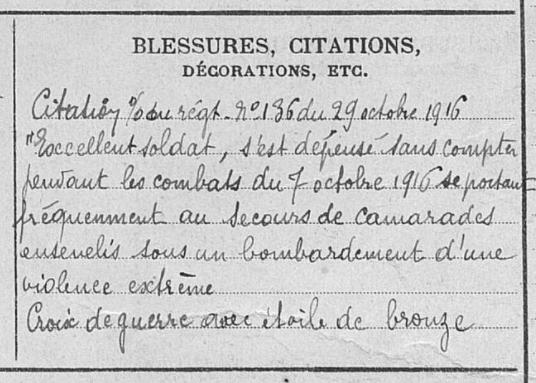 BLESSURES, CITATIONS,
DÉCORATIONS, ETC.
Citation o/o du régt. N° 136 du 29 octobre 1916
"Excellent soldat, s'est dépensé sans compter
pendant les combats du 7 octobre 1916 se portant
fréquemment au secours de camarades
ensevelis sous un bombardement d'une
violence extrème
Croix de guerre avec étoile de bronze